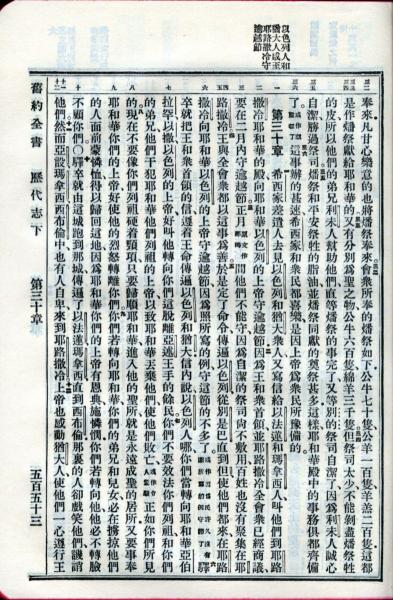 以色列人和
猶大人咸至
耶路撒冷守
逾越節
奉來凡甘心樂意的也將燔祭奉來會衆所奉的燔祭如下公牛七十隻公羊一百隻羊羔二百隻這都
是作燔祭獻給耶和華的又有分別爲聖之物公牛六百隻綿羊三千隻但祭司太少不能剝盡燔祭牲
的皮所以他們的弟兄利未人幫助他們直等燔祭的事完了又等別的祭司自潔了因爲利未人誠心
自潔勝過祭司燔祭和平安祭牲的脂油並燔祭同獻的奠祭甚多這樣耶和華殿中的事務俱都齊備
了這事辦的甚速希西家和衆民都喜樂是因上帝爲衆民所豫備的
第三十章 希西家差遣人去見以色列和猶大衆人又寫信給以法蓮和瑪拿西人叫他們到耶路
撒冷耶和華的殿向耶和華以色列的上帝守逾越節因爲王和衆首領並耶路撒冷全會衆已經商議
要在二月內守逾越節正月間他們不能守因爲自潔的祭司尚不敷用百姓也沒有聚集在耶
路撒冷王與全會衆都以這事爲善於是定了命令傳遍以色列從別是巴直到但使他們都來在耶路
撒冷向耶和華以色列的上帝守逾越節因爲照所寫的例守這節的不多了驛
卒就把王和衆首領的信遵着王命傳遍以色列和猶大信內說以色列人哪你們當轉向耶和華亞伯
拉罕以撒以色列的上帝好叫他轉向你們這脫離亞述王手的餘民你們不要效法你們列祖和你們
的弟兄他們干犯耶和華他們列祖的上帝以致耶和華丟棄他們使他們敗亡正如你們所見
的現在不要像你們列祖硬着頸項只要歸順耶和華進入他的聖所就是永遠成聖的居所又要事奉
耶和華你們的上帝好使他的烈怒轉離你們你們若轉向耶和華你們的弟兄和兒女必在擄掠他們
的人面前蒙憐恤得以歸回這地因爲耶和華你們的上帝有恩典施憐憫你們若轉向他他必不轉臉
不顧你們驛卒就由這城跑到那城傳遍了以法蓮瑪拿西直到西布倫那裏的人却戲笑他們譏誚
他們然而亞設瑪拿西西布倫中也有人自卑來到耶路撒冷上帝也感動猶大人使他們一心遵行王
舊約全書 歷代志下 第三十章 五百五十三